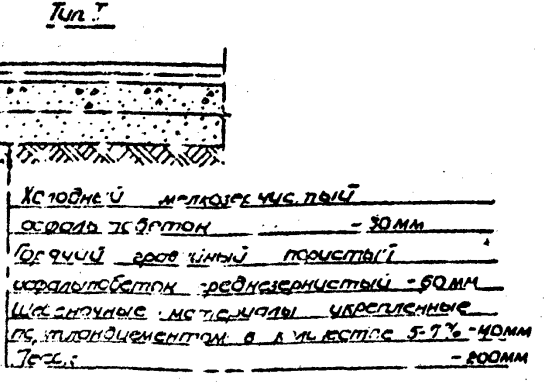 Тип I
Холодный мелкозернистый
асфальтобетон - 30мм
Горячий гравийный пористый
асфальтобетон среднезернистый - 60мм
Щебеночные материалы укрепленные
портландцементом в количестве 5-7% -40мм
-200мм